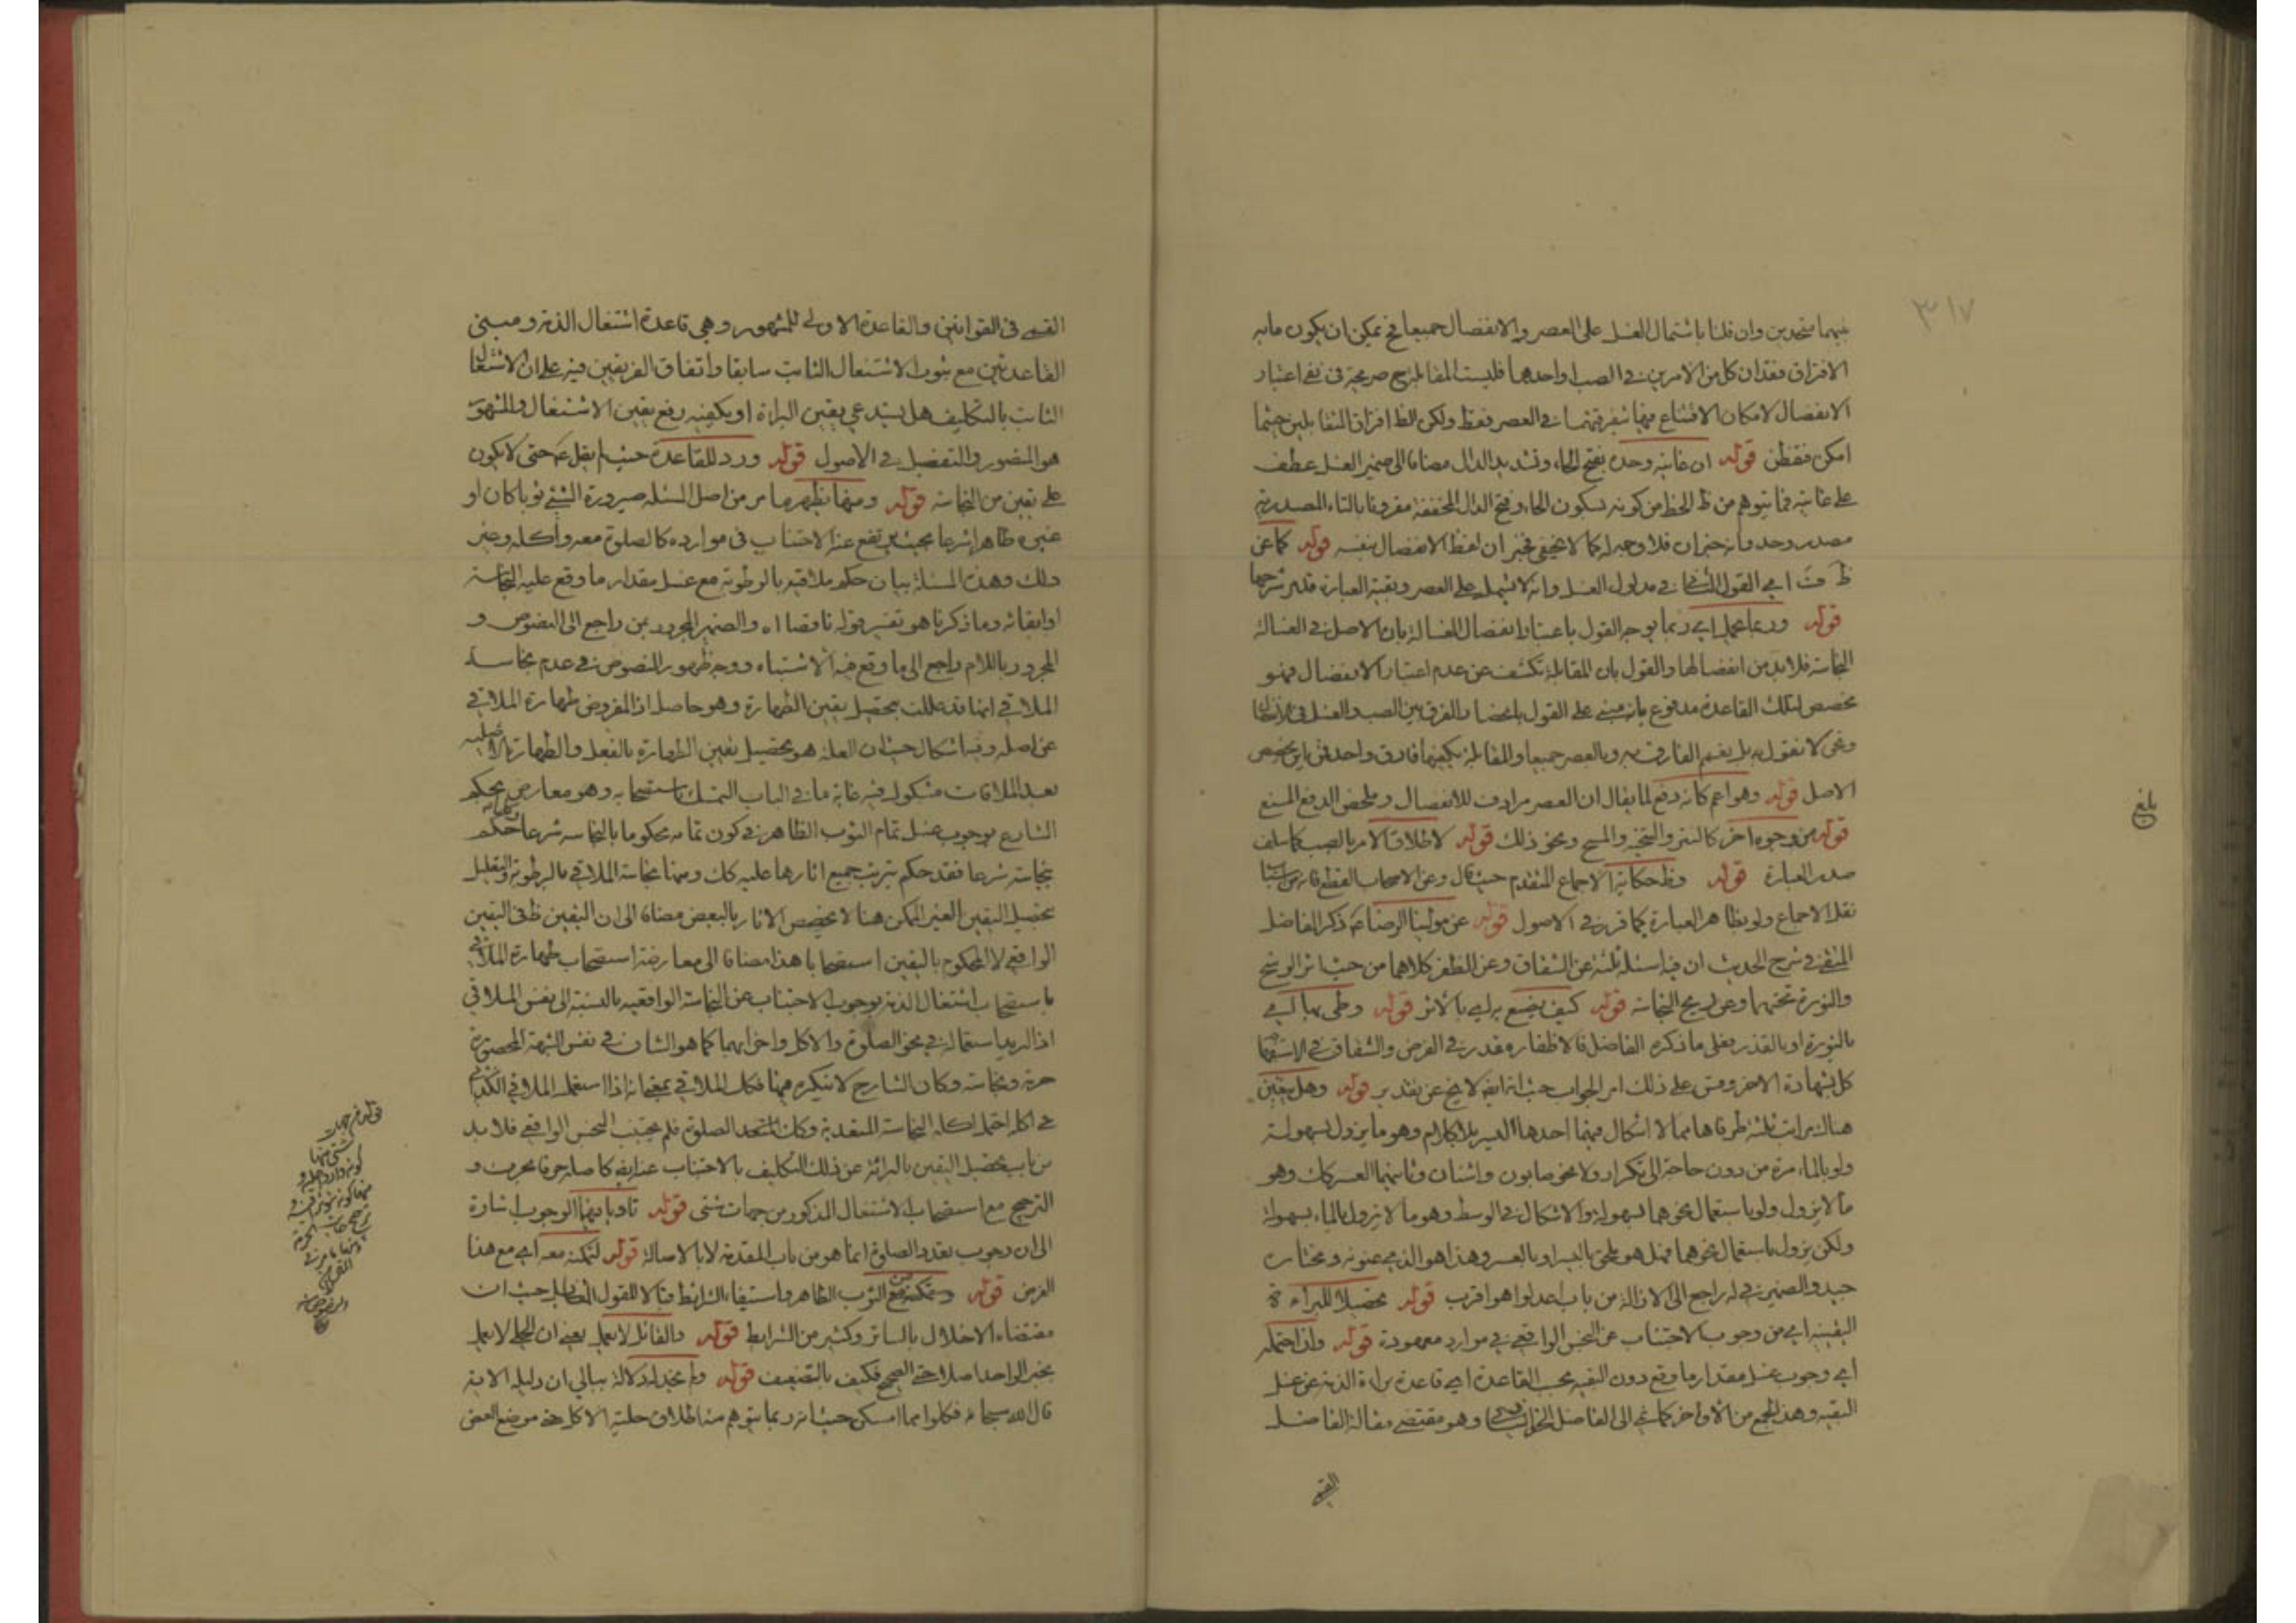 ٣١٧
فيهما متحدين وان قلنا باشتمال الغسل على العصر والانفصال جميعا فح يمكن ان يكون مابه
الافتراق فقدان كل من الامرين في الصب او احدهما فليست المقابلة ح صريحة في نفي اعتبار
الانفصال لامكان الاقتناع منهما بتفرقتهما في العصر فقط ولكن الظ افتراق المتقابلين حيثما
امكن فتفطن قوله ان غايته وحده بفتح الحاء وتشديد الدال مضافا الى ضمير الغسل عطف
على غايته فما يتوهم من ظ الخط من كونه بسكون الحاء وفتح الدال المخففة مقرونا بالتاء المصدرية
مصدر وحد وانه خبر ان فلا وجه له كما لا يخفى فخبر ان لفظ الانفصال نفسه قوله كما عن
اي القول في مدلول الغسل وانه لا يشمل على العصر وبقية العبارة قد مر شرحها
قوله وربما اي ربما يوجه القول باعتبار انفصال الغسالة بان الاصل في الغسالة
النجاسة فلا بد من انفصالها والقول بان المقابلة تكشف عن عدم اعتبار الانفصال فهو
مخصص لتلك القاعدة مدفوع بانه مبني على القول بانحصار الفرق بين الصب والغسل في
ونحن لا نقول به بل نعمم الفارق به وبالعصر جميعا والمقابلة يكفيها فارق واحد فمن اين يخصص
الاصل قوله وهو اعم كانه دفع لما يقال ان العصر مرادف للانفصال وملخص الدفع المنع
قوله من وجوه اخر كالنتر والمسح ونحو ذلك قوله لاطلاق الامر بالصب كما سلف
صدر العبارة قوله وظ حكاية الاجماع المتقدم حيث قال وعن الاصحاب القطع فانه
نقل الاجماع ولو بظاهر العبارة كما قرر في الاصول قوله عن مولينا الرضا ذكر الفاضل
في شرح الحديث ان فيه اسئلة ثلثة عن الشقاق وعن الظفر كلاهما من حيث اثر الوسخ
والنورة تحتهما وعن ريح النجاسة قوله كيف يصنع به اي بالاثر قوله وطى بها اي
بالنورة او بالقذر فعلى ما ذكره الفاضل فالاظفار مقدر في الفرض والشقاق في
كل بشهادة الاخر وقس على ذلك امر الجواب حيث انه ايضا لا يخ عن تقدير قوله وهل يتعين
هناك مراتب ثلثة طرفاها مما لا اشكال فيهما احدها اليسير بلا كلام وهو ما يزول بسهولة
ولو بالماء مرة من دون حاجة الى تكرار ولا نحو صابون واشنان وثانيهما العسر كك وهو
ما لا يزول ولو باستعمال نحوهما بسهولة والاشكال في الوسط وهو ما لا يزول بالماء بسهولة
ولكن يزول باستعمال نحوهما فهل هو ملحق باليسر او بالعسر وهذا هو الذي عنونه ومختاره
جيد والضمير في له راجع الى الازالة من باب اعدلوا هو اقرب قوله تحصيلا للبراءة
اليقينية اي من وجوب الاجتناب عن النجس الواقعي في موارد معهودة قوله وان احتمل
اي وجوب غسل مقدار ما وقع دون البقية بحسب القاعدة اي قاعدة براءة الذمة عن غسل
البقية وهذا من الاواخر كما الى الفاضل وهو مقتضى مقالة الفاضل
القمي
بلغ
القمي في القوانين والقاعدة الاولى للمشهور وهي قاعدة اشتغال الذمة ومبنى
القاعدتين مع ثبوت الاشتغال الثابت سابقا واتفاق الفريقين فيه على ان الاشتغال
الثابت بالتكليف هل يستدعي يقين البراءة او يكفيه رفع يقين الاشتغال والمشهور
هو المنصور والتفصيل في الاصول قوله ورد للقاعدة حيث لم يقل حتى لا يكون
على يقين من النجاسة قوله ومنها يظهر ما مر من اصل المسئلة صيرورة الشيء ثوبا كان او
غيره ظاهرا شرعا بحيث يرتفع عنه الاجتناب في موارده كالصلوة معه واكله وغير
ذلك وهذه المسئلة بيان حكم ملاقيه بالرطوبة مع غسل مقدار ما وقع عليه النجاسة
او ابقائه وما ذكرنا هو تفسير قوله ناقصا اه والضمير المجرور بمن راجع الى النصوص و
المجرور باللام راجع الى ما وقع فيه الاشتباه ووجه ظهور النصوص في عدم نجاسة
الملاقي انها قد عللت بتحصيل يقين الطهارة وهو حاصل اذ المفروض طهارة الملاقي
عن اصله وفيه اشكال حيث ان العلة هو تحصيل يقين الطهارة بالفعل والطهارة
بعد الملاقات مشكوك فيه غاية ما في الباب التمسك باستصحابه وهو معارض بحكم
الشارع بوجوب غسل تمام الثوب الظاهر في كون تمامه محكوما بالنجاسة شرعا حكم
بنجاسته شرعا فقد حكم بترتيب جميع اثارها عليه كك ومنها نجاسة الملاقي بالرطوبة والتعليل
بتحصيل اليقين الغير الممكن هنا لا يخصص الاثار بالبعض مضافا الى ان اليقين ظ في اليقين
الواقعي لا المحكوم باليقين استصحابا هذا مضافا الى معارضة استصحاب طهارة الملاقي
باستصحاب اشتغال الذمة بوجوب الاجتناب عن النجاسة الواقعية بالنسبة الى نفس الملاقي
اذا اريد استعماله في نحو الصلوة والاكل واخواتهما كما هو الشان في نفس الشبهة المحصورة
حرمة ونجاسة وكان الشارح لا ينكره فيها فكك الملاقي بمعنى انه اذا استعمل الملاقي
في اكله احتمل اكله النجاسة المتعدية وكان الصلوة فلم يجتنب النجس الواقعي فلا بد
من باب تحصيل اليقين بالبرائة عن ذلك التكليف بالاجتناب عنه ايضا كاصله حرفا بحرف و
الترجيح مع استصحاب الاشتغال المذكور من جهات شتى قوله ناويا فيها الوجوب اشارة
الى ان وجوب تعدد الصلوة انما هو من باب المقدمة لا بالاصالة قوله لتمكنه معه اي مع هذا
الفرض قوله وتمكنه من الثوب الطاهر واستيفاء الشرائط للقول حيث ان
مقتضاه الاخلال بالساتر وكثير من الشرائط قوله والقائل لا يعمل يعني ان الحلي لا يعمل
بخبر الواحد اصلا حتى الصحيح فكيف بالضعيف قوله ولم نجد له دلالة ببالي ان دليله الاية
قال الله سبحانه فكلوا مما امسكن حيث انه ربما يتوهم منه اطلاق حلية الاكل حتى موضع العض
قوله من جهات
شتى منها